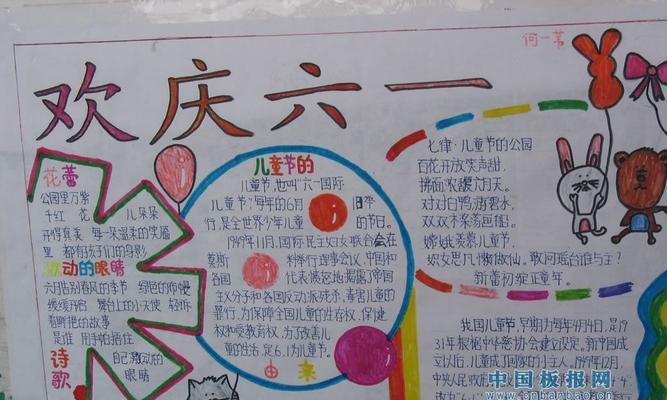 何一芳
欢庆六一
花蕾
公园里万紫
千红 花 儿朵朵
开得真美 每一朵温柔的笑眉
里 都有孩子们的身影
跃动的眼睛
六月告别春风的季节 绿色的帏幔
缓缓开启 舞台上的小天使 轻诉
着睡着的故事
是谁 用手帕捂住
自己激动的
眼睛
诗歌
儿童节的
儿童节,也叫"六一国际
儿童节",每年的6月 1日举
行,是全世界少年儿童 的节日。
1949年11月,国际民主妇女联合会在
莫斯 科举行理事会议,中国和
各国 代表愤怒地揭露了帝国
主义分子和各国反动派残杀、毒害儿童的
罪行,为保障全国儿童的生存权、保健
权和受教育权,为了改善儿
童的生活,定6.1为儿童节。
由来
七律·儿童节的公园
百花开放笑声甜
拂面浓馥六月天。
对对白鸭游碧水,
双双木桨荡画船。
嫦娥羡慕儿童节,
织女思凡懒做仙。敢问瑶台谁与主?
新蕾初绽正童年。
我国儿童节,早期为每年4月4日,是19
31年根据中华慈幼协会建立设定。新中国成
立以后,儿童成了国家的小主人。1949年12月,
中央人民政
中国板报网
www.cnbanbao.cn